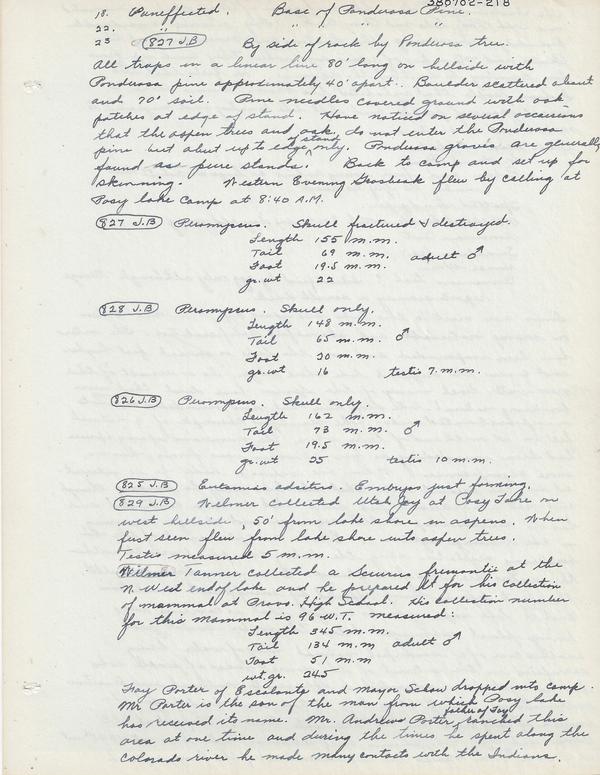 280702-218
18. Uneffected. Base of Ponderosa Pine.
22. " " " "
23 827 J.B By side of rock by Ponderosa tree.
All traps in a linear line 80' long on hillside with
Ponderosa pine approximately 40' apart. Boulder scattered about
and 70' soil. Pine needles covered ground with oak
patches at edge of stand. Have noticed on several occassions
that the aspen trees and oak do not enter the Ponderosa
pine but abut up to edge of stand only. Ponderosa groves are generally
found as pure stands. Back to camp and set up for
skinning. Western Evening Grosbeak flew by calling at
Posy lake Camp at 8:40 A.M.
827 J.B Peromyscus. Skull fractured & destroyed.
Length 155 m.m.
Tail 69 m.m. adult ♂
Foot 19.5 m.m.
gr.wt 22
828 J.B Peromyscus. Skull only.
Length 148 m.m.
Tail 65 m.m. ♂
Foot 20 m.m.
gr.wt 16 testis 7 m.m.
826 J.B Peromyscus. Skull only.
Length 162 m.m.
Tail 73 m.m. ♂
Foot 19.5 m.m.
gr.wt 25 testis 10 m.m.
825 J.B Eutamias adsitus. Embryos just forming.
829 J.B Wilmer collected Utah Jay at Posy Lake on
west hillside, 50' from lake shore in aspens. When
first seen flew from lake shore into aspen trees.
Testis measured 5 m.m.
Wilmer Tanner collected a Sciurus fremontii at the
N. West end of lake and he prepared it for his collection
of mammal at Provo High School. His collection number
for this mammal is 96 W.T. measured:
Length 345 m.m.
Tail 134 m.m adult ♂
Foot 51 m.m
wt.gr. 245
Fay Porter of Escalante and Mayor Schow dropped into camp.
Mr. Porter is the son of the man from which Posy lake
has received its name. Mr. Andrews Porter father of Fay ranched this
area at one time and during the times he spent along the
Colorado river he made many contacts with the Indians.